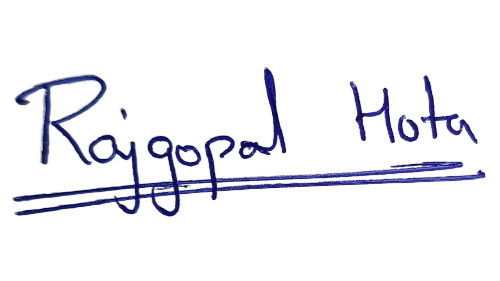 Rajgopal Hota